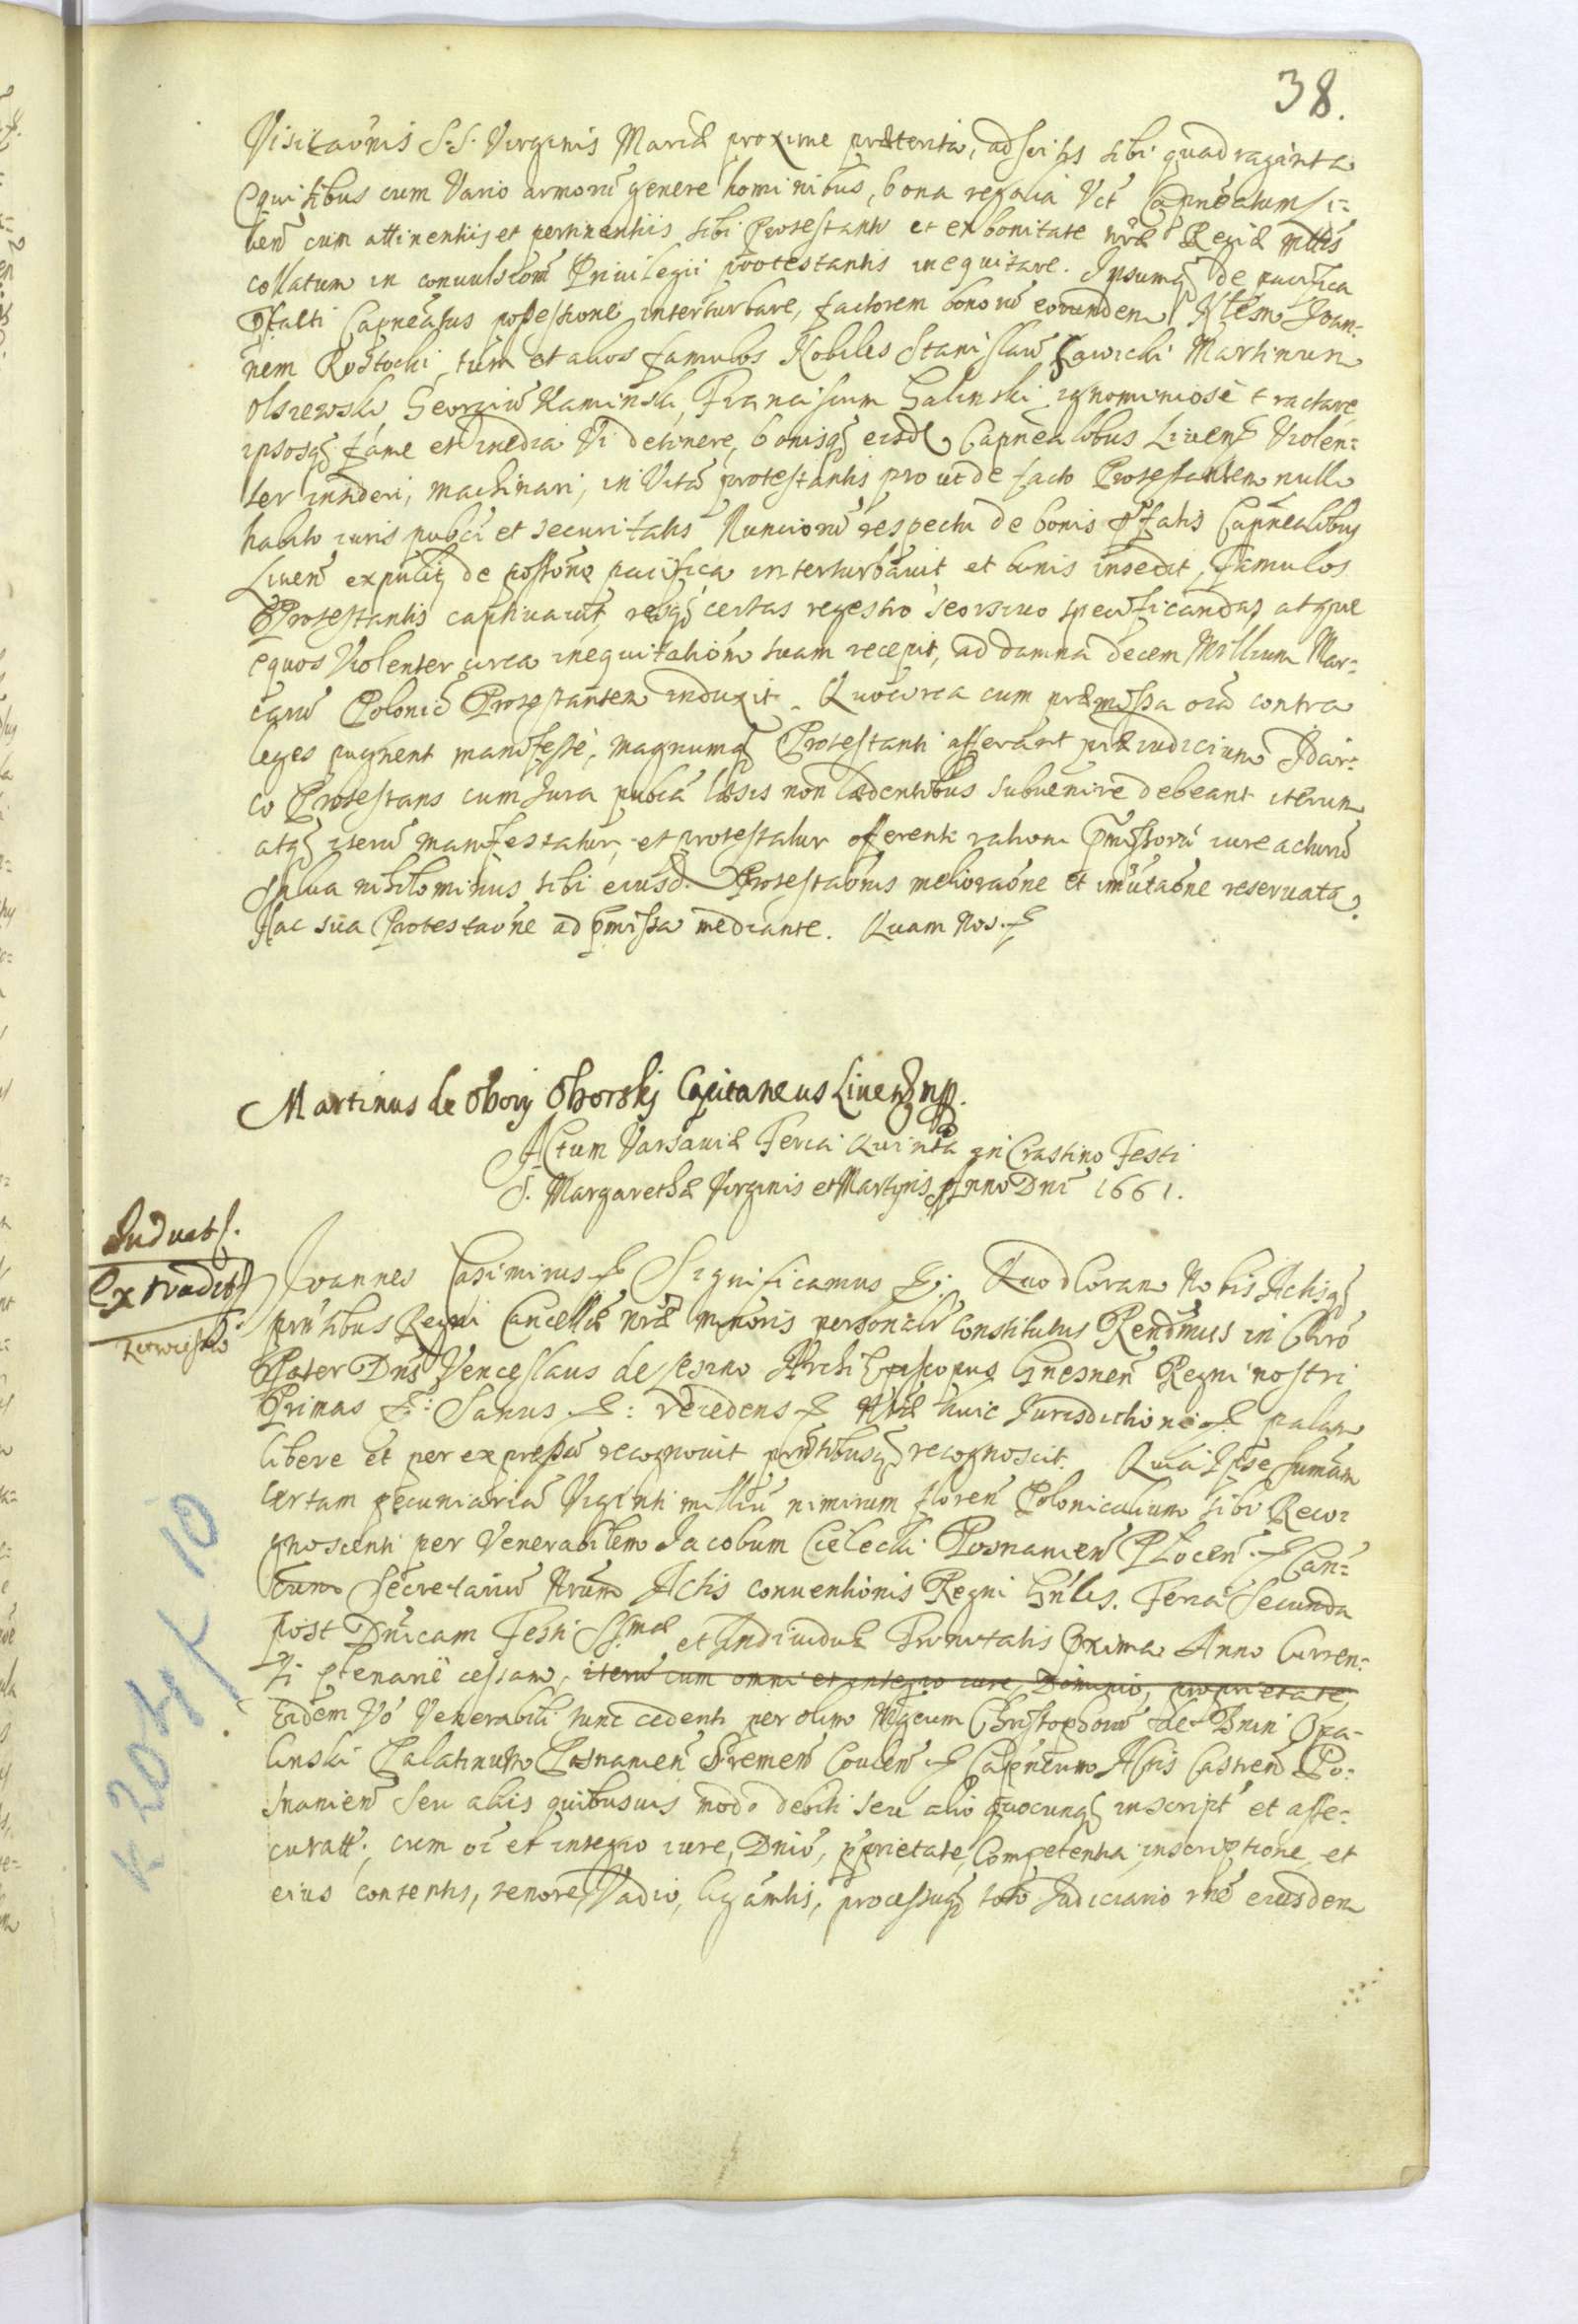 38.
Visitaōnis S.S. Virginis Mariæ proxime præterita, adscitis sibi quadraginta
Equitibus cum Vario armorū genere hominibus, bona regalia Vct Capneatum Li-
uen̄ cum attinentiis et pertinentiis sibi Protestanti et ex bonitate nrǣ Regiæ Mttis
collatum in conuulsionē Priuilegii protestantis inequitare. Ipsumq de pacifica
Pfati Capneatus possessione interturbare, factorem bonorū eorundem Nlem Ioan-
nem Rostochi tum et alios famulos Nobiles Stanislaū Sawicki Martinum
Olszewski Georgiū Kaminski, Franciscum Galinski ignominiose tractare
ipsosq fame et inedia Vi detinere, bonisq eisd Capnealibus Liuen Violen-
ter insideri, machinari, in Vitā protestantis pro ut de facto Protestantem nullo
habito iuris pubci et securitatis Nuncionū respectu de bonis pfatis Capnealibus
Liuen̄ expulit, de possōne pacifica interturbauit et bonis insedit, famulos
Protestantis captiuauit, resq certas regestro seorsiuo specificandas atque
equos Violenter circa inequitationē suam recepit, ad damna decem Millium Mar-
carū Polonic Protestantem induxit. Quocirca cum præmissa oia contra
leges pugnent manifeste, magnumq Protestanti afferant præiudicium Idcir-
co Protestans cum Iura pubca læsis non lædentibus subuenire debeant iterum
atq iterū manifestatur, et protestatur offerens se ratione pmissorū iure acturū
Salua nihilominus sibi eiusd. Protestaōnis melioraōne et imutaōne reseruata
Hac sua Protestaōne ad pmissa mediante. Quam Nos.
Martinus de Obory Oborsky Capitaneus Liuen mp.
Actum Varsauiæ Feria Quinta in Crastino Festi
S. Margarethæ Virginis et Martyris Anno Dni 1661.
Induct.
Extradit
Ioannes Casimirus Significamus Quod Coram Nobis Actisq
pntibus Regni Cancellæ nrǣ minoris personalr constitutus Rendmus in Chro
Pater Dns Venceslaus de Leszno Archi Episcopus Gnesnen̄ Regni nostri
Primas Sanus recedens huic Iurisdictioni palam
libere et per expressū recognouit pntibusq recognoscit. Quia Ipse sumam
certam pecuniariā Viginti milliū nimirum floren̄ Polonicalium sibi Reco-
gnoscenti per Venerabilem Iacobum Cielecki Posnanien̄ Plocen̄ Can-
cum Secretariū Nrum Actis conuentionis Regni Gnlis. Feria Secunda
post Dnicam Festi SS.mæ et Indiuiduæ Trinitatis Oxima Anno Curren-
ti plenarie cessam, iterū cum omni et integro iure, Dominio, proprietate,
Eidem Vo Venerabili tunc cedenti per olim Mgcum Christophorū de Bnin Opa-
linski Palatinum Posnanien̄ Sremen̄ Couelen̄ Capneum Actis Castren̄ Po-
snanien̄ seu aliis quibusuis modo debiti seu alio quocunq inscript et asse-
curatt, cum oi et integro iure, Dnio, pprietate, Competentia, inscriptione, et
eius contentis, tenore, Vadio, ligamtis, processuq toto Iudiciario rne eiusdem
K 204/10